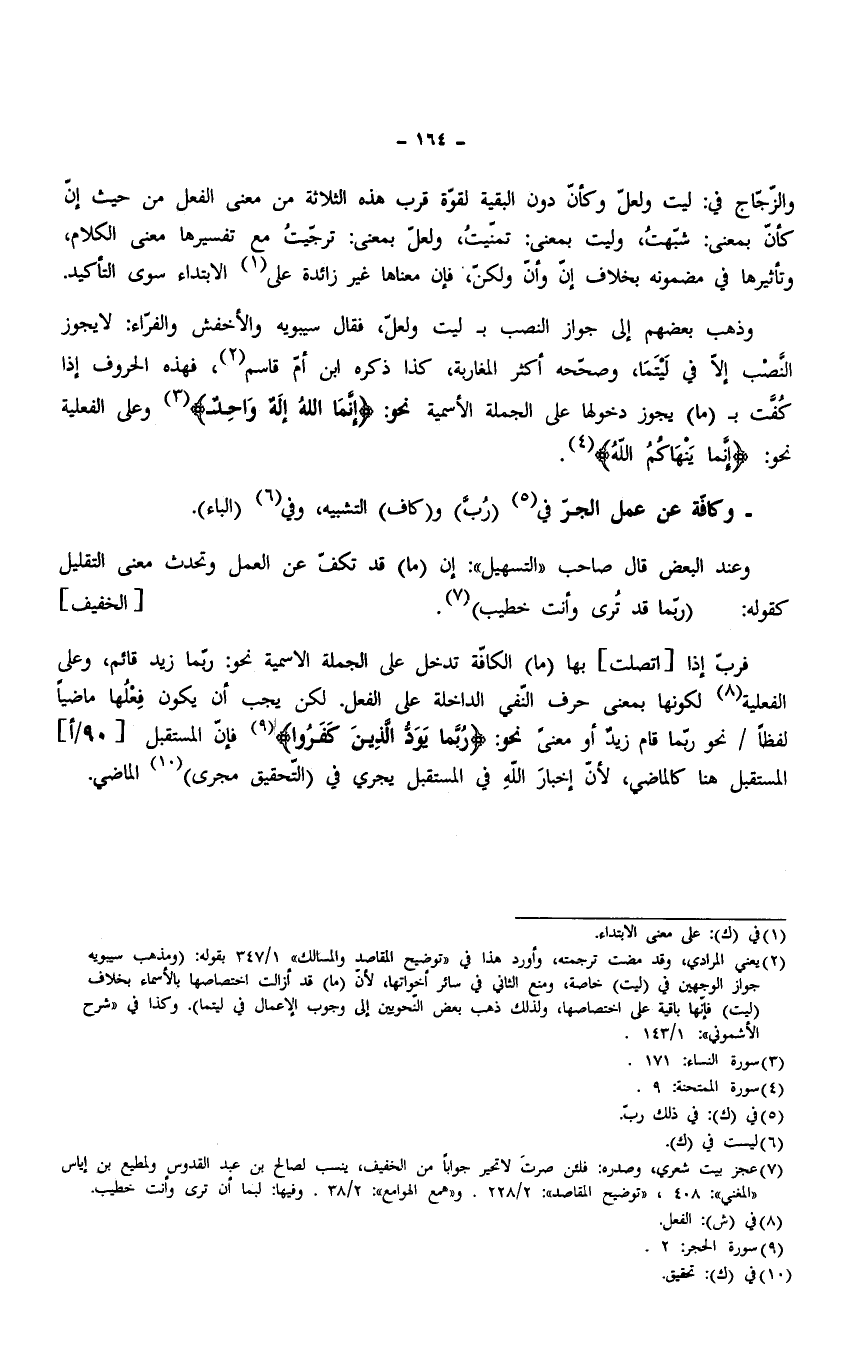 - ١٦٤ -
والزّجّاج في: ليت ولعلّ وكأنّ دون البقية لقوّة قرب هذه الثلاثة من معنى الفعل من حيث إنّ
كأنّ بمعنى: شبّهتُ، وليت بمعنى: تمنّيتُ، ولعلّ بمعنى: ترجّيتُ مع تفسيرها معنى الكلام،
وتأثيرها في مضمونه بخلاف إنّ وأنّ ولكنّ، فإن معناها غير زائدة على(١) الابتداء سوى التأكيد.
وذهب بعضهم إلى جواز النصب بـ ليت ولعلّ، فقال سيبويه والأخفش والفرّاء: لايجوز
النَّصْب إلاّ في لَيْتَمَا، وصحّحه أكثر المغاربة، كذا ذكره ابن أمّ قاسم(٢)، فهذه الحروف إذا
كُفَّت بـ (ما) يجوز دخولها على الجملة الأسمية نحو: ﴿إِنَّمَا اللهُ إِلَهٌ وَاحِدٌ﴾(٣) وعلى الفعلية
نحو: ﴿إِنَّما يَنْهَاكُمُ اللّهُ﴾(٤).
- وكافّة عن عمل الجرّ في(٥) (رُبَّ) و(كاف) التشبيه، وفي(٦) (الباء).
وعند البعض قال صاحب «التسهيل»: إن (ما) قد تكفّ عن العمل وتحدث معنى التقليل
كقوله: (ربّما قد تُرى وأنت خطيب)(٧). [الخفيف]
فربّ إذا [اتصلت] بها (ما) الكافّة تدخل على الجملة الاسمية نحو: ربّما زيد قائم، وعلى
الفعلية(٨) لكونها بمعنى حرف النّفي الداخلة على الفعل. لكن يجب أن يكون فِعْلُها ماضياً
لفظاً / نحو ربّما قام زيدٌ أو معنىً نحو: ﴿رُبَّما يَوَدُّ الَّذِينَ كَفَرُوا﴾(٩) فإنّ المستقبل [٩٠/أ]
المستقبل هنا كالماضي، لأنّ إخبارَ اللّهِ في المستقبل يجري في (التّحقيق مجرى)(١٠) الماضي.
(١) في (ك): على معنى الابتداء.
(٢) يعني المرادي، وقد مضت ترجمته، وأورد هذا في «توضيح المقاصد والمسالك» ٣٤٧/١ بقوله: (ومذهب سيبويه
جواز الوجهين في (ليت) خاصة، ومنع الثاني في سائر أخواتها، لأنّ (ما) قد أزالت اختصاصها بالأسماء بخلاف
(ليت) فإنّها باقية على اختصاصها، ولذلك ذهب بعض النّحويين إلى وجوب الإعمال في ليتما). وكذا في «شرح
الأشموني»: ١٤٣/١ .
(٣) سورة النساء: ١٧١ .
(٤) سورة الممتحنة: ٩ .
(٥) في (ك): في ذلك ربّ.
(٦) ليست في (ك).
(٧) عجز بيت شعري، وصدره: فلئن صرتَ لاتحير جواباً من الخفيف، ينسب لصالح بن عبد القدوس ولمطيع بن إياس
«المغني»: ٤٠٨ ، «توضيح المقاصد»: ٢٢٨/٢ . و«همع الهوامع»: ٣٨/٢ . وفيها: لبما أن ترى وأنت خطيب.
(٨) في (ش): الفعل.
(٩) سورة الحجر: ٢ .
(١٠) في (ك): تحقيق.